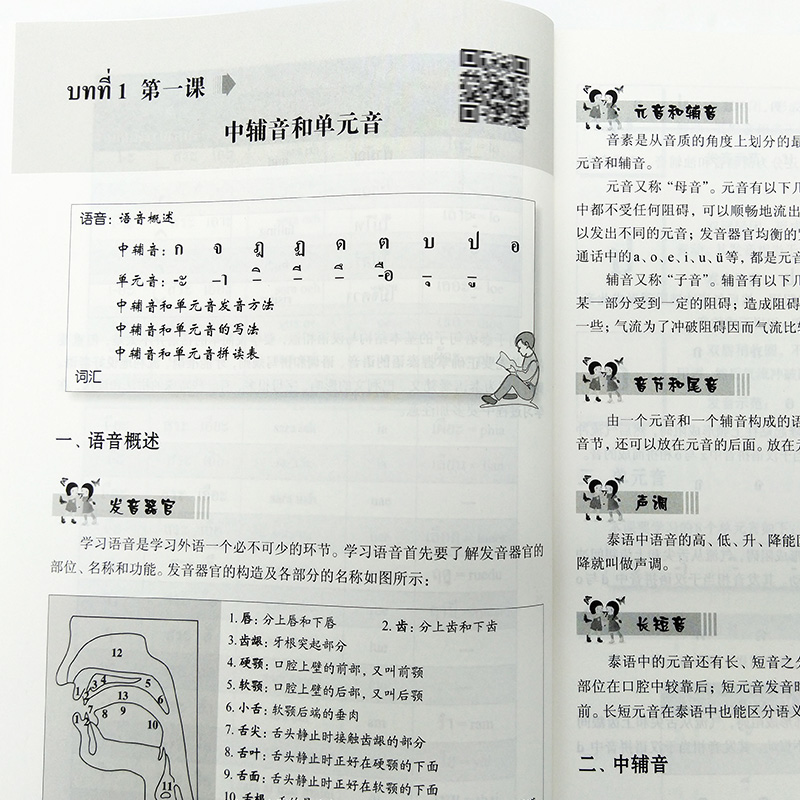 บทที่ 1 第一课
中辅音和单元音
语音：语音概述
中辅音：ก จ ฎ ฏ ด ต บ ป อ
单元音：-ะ -า -ิ -ี -ึ -ือ -ุ -ู
中辅音和单元音发音方法
中辅音和单元音的写法
中辅音和单元音拼读表
词汇
一、语音概述
发音器官
学习语音是学习外语一个必不可少的环节。学习语音首先要了解发音器官的
部位、名称和功能。发音器官的构造及各部分的名称如图所示：
12
3 4 5
1 2 13 6
7
1 2 8 9
10
11
1. 唇：分上唇和下唇 2. 齿：分上齿和下齿
3. 齿龈：牙根突起部分
4. 硬颚：口腔上壁的前部，又叫前颚
5. 软颚：口腔上壁的后部，又叫后颚
6. 小舌：软颚后端的垂肉
7. 舌尖：舌头静止时接触齿龈的部分
8. 舌叶：舌头静止时正好在硬颚的下面
9. 舌面：舌头静止时正好在软颚的下面
10. 舌根：
元音和辅音
音素是从音质的角度上划分的最
元音和辅音。
元音又称“母音”。元音有以下几
中都不受任何阻碍，可以顺畅地流出
以发出不同的元音；发音器官均衡的
通话中的a、o、e、i、u、ü等，都是元音
辅音又称“子音”。辅音有以下几
某一部分受到一定的阻碍；造成阻碍
一些；气流为了冲破阻碍因而气流比
音节和尾音
由一个元音和一个辅音构成的语
音节，还可以放在元音的后面。放在元
声调
泰语中语音的高、低、升、降能区
降就叫做声调。
长短音
泰语中的元音还有长、短音之分
部位在口腔中较靠后；短元音发音时
前。长短元音在泰语中也能区分语义
二、中辅音